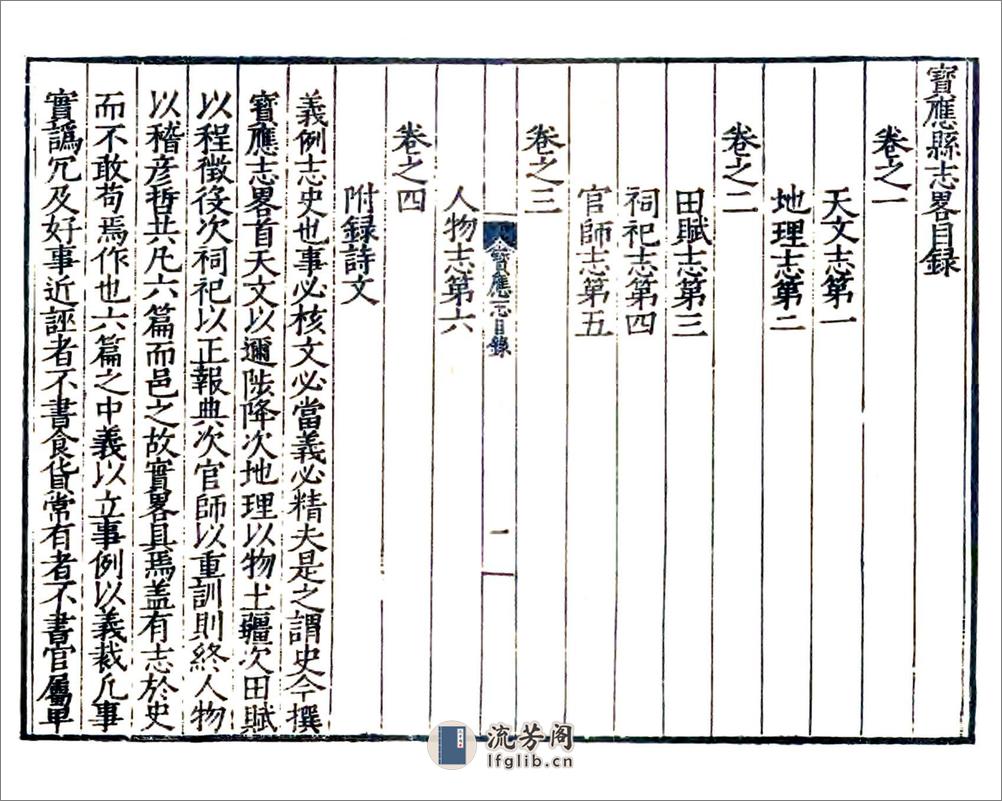 寳應縣志畧目録
卷之一
天文志第一
地理志第二
卷之二
田賦志第三
祠祀志第四
官師志第五
卷之三
寳應志目錄
一
人物志第六
卷之四
附録詩文
義例志史也事必核文必當義必精夫是之謂史今撰
寳應志畧首天文以邇陟降次地理以物土疆次田賦
以程徵役次祠祀以正報典次官師以重訓則終人物
以稽彦哲共凡六篇而邑之故實畧具焉盖有志於史
而不敢苟焉作也六篇之中義以立事例以義裁凡事
實譌冗及好事近誣者不書食貨常有者不書官屬卑
流芳阁
lfglib.cn